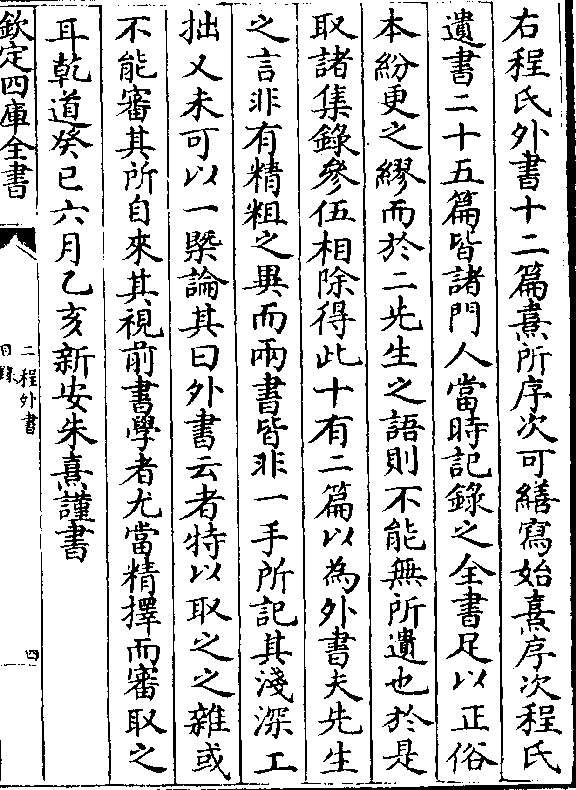 右程氏外書十二篇熹所序次可繕寫始熹序次程氏
遺書二十五篇皆諸門人當時記錄之全書足以正俗
本紛更之繆而於二先生之語則不能無所遺也於是
取諸集錄參伍相除得此十有二篇以為外書夫先生
之言非有精粗之異而兩書皆非一手所記其淺深工
拙又未可以一槩論其曰外書云者特以取之之雜或
不能審其所自來其視前書學者尤當精擇而審取之
耳乾道癸巳六月乙亥新安朱熹謹書
欽定四庫全書
二程外書
目錄
四